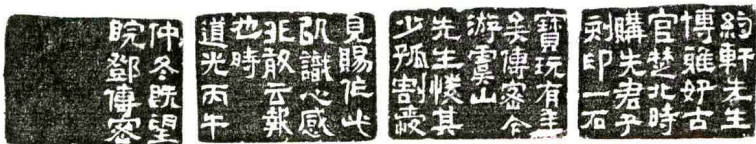 約軒先生
博雅好古
官楚北時
購先君子
刻印一石
寶玩有年
矣傳密今
游虞山
先生其
少孤割愛
見賜作此
印識心感
非敢云報
也時
道光丙午
仲冬既望
皖鄧傳密